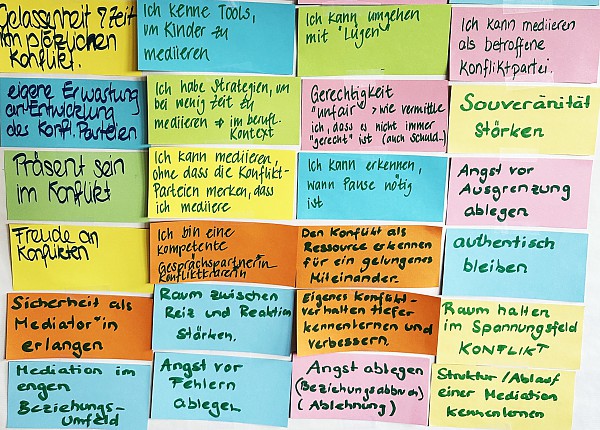 Gelassenheit & Zeit
im plötzlichen
Konflikt.
Ich kenne Tools,
um Kinder zu
mediieren
Ich kann umgehen
mit "Lügen"
Ich kann mediieren
als betroffene
Konfliktpartei.
eigene Erwartung
an Entwicklung
des Konfl. Parteien
Ich habe Strategien, um
bei wenig Zeit zu
mediieren → im berufl.
Kontext
Gerechtigkeit
"unfair" > wie vermittle
ich, dass es nicht immer
"gerecht" ist (auch Schuld...)
Souveränität
Stärken
Präsent sein
im Konflikt
Ich kann mediieren,
ohne dass die Konflikt-
Parteien merken, dass
ich mediiere
Ich kann erkennen,
wann Pause nötig
ist
Angst vor
Ausgrenzung
ablegen
Freude an
Konflikten
Ich bin eine
kompetente
Gesprächspartnerin
Konfliktklärerin
Den Konflikt als
Ressource erkennen
für ein gelungenes
Miteinander.
authentisch
bleiben
Sicherheit als
Mediator*in
erlangen
Raum zwischen
Reiz und Reaktion
Stärken.
Eigenes Konflikt-
verhalten tiefer
kennenlernen und
verbessern.
Raum halten
im Spannungsfeld
KONFLIKT
Mediation im
engen
Beziehungs-
Umfeld
Angst vor
Fehlern
ablegen
Angst ablegen
(Beziehungsabbruch)
(Ablehnung)
Struktur/Ablauf
einer Mediation
kennenlernen